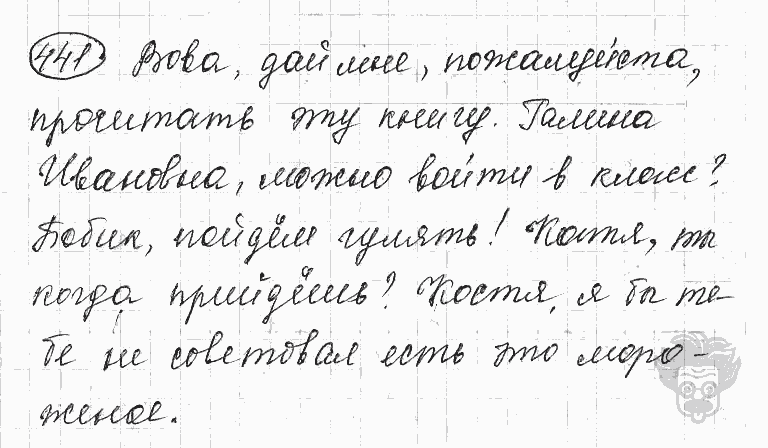 441 Вова, дай мне, пожалуйста,
прочитать эту книгу. Галина
Ивановна, можно войти в класс?
Бобик, пойдём гулять! Катя, ты
когда прийдёшь? Костя, я бы те-
бе не советовал есть это моро-
женое.